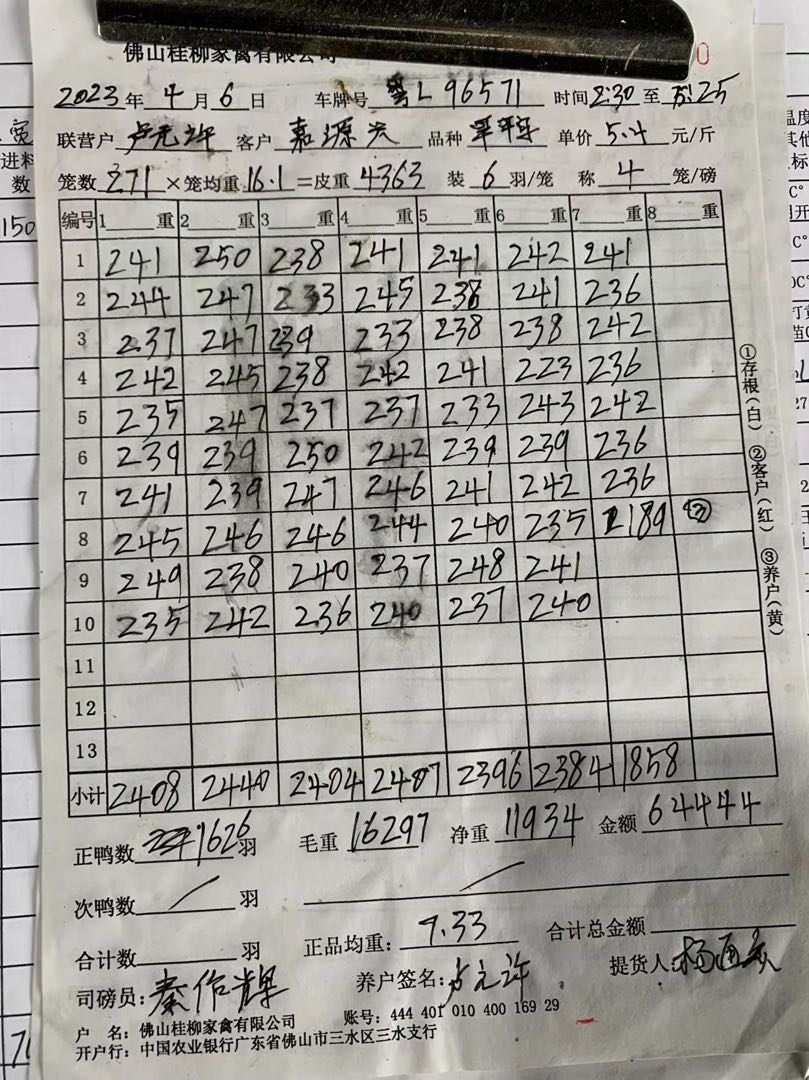 佛山桂柳家禽有限公司
2023年 4 月 6 日 车牌号 粤L 96571 时间 2:30 至 5:25
联营户 卢元许 客户 嘉源 品种 单价 5.4 元/斤
笼数 271 ×笼均重 16.1 =皮重 4363 装 6 羽/笼 称 4 笼/磅
编号 1 重 2 重 3 重 4 重 5 重 6 重 7 重 8 重
1 241 250 238 241 241 242 241
2 244 247 233 245 238 241 236
3 237 247 239 233 238 238 242
4 242 245 238 242 241 223 236
5 235 247 237 237 233 243 242
6 239 239 250 242 239 239 236
7 241 239 247 246 241 242 236
8 245 246 246 244 240 235 189 ③
9 249 238 240 237 248 241
10 235 242 236 240 237 240
11
12
13
小计 2408 2440 2404 2407 2396 2384 1858
正鸭数 1626 羽 毛重 16297 净重 11934 金额 64444
次鸭数 羽
合计数 羽 正品均重: 7.33 合计总金额
司磅员: 秦作辉 养户签名: 卢元许 提货人: 杨
户 名: 佛山桂柳家禽有限公司 账号: 444 401 010 400 169 29
开户行: 中国农业银行广东省佛山市三水区三水支行
①存根(白) ②客户(红) ③养户(黄)
进料
数
150
温度
其他